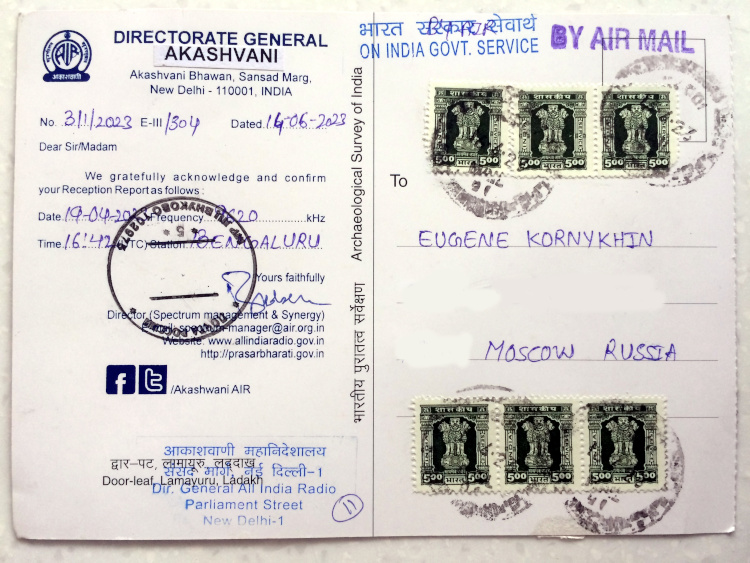 आकाशवाणी
DIRECTORATE GENERAL
AKASHVANI
Akashvani Bhawan, Sansad Marg,
New Delhi - 110001, INDIA
No. 3/1/2023 E-III/304 Dated 14-06-2023
Dear Sir/Madam
We gratefully acknowledge and confirm
your Reception Report as follows :
Date 19-04-2023 Frequency 9620 kHz
Time 16:42 (UTC) Station BENGALURU
Yours faithfully
Director (Spectrum management & Synergy)
spectrum-manager@air.org.in
Website: www.allindiaradio.gov.in
http://prasarbharati.gov.in
/Akashwani AIR
द्वार-पट, लामायुरु, लद्दाख
Door-leaf, Lamavuru, Ladakh
आकाशवाणी महानिदेशालय
संसद मार्ग, नई दिल्ली-1
Dir. General All India Radio
Parliament Street
New Delhi-1
11
भारतीय पुरातत्व सर्वेक्षण Archaeological Survey of India
भारत सरकार सेवार्थ
ON INDIA GOVT. SERVICE
BY AIR MAIL
शासकीय शासकीय शासकीय
5.00 भारत 5.00 भारत 5.00 भारत 5.00
To
EUGENE KORNYKHIN
MOSCOW RUSSIA
शासकीय शासकीय शासकीय
5.00 भारत 5.00 भारत 5.00 भारत 5.00